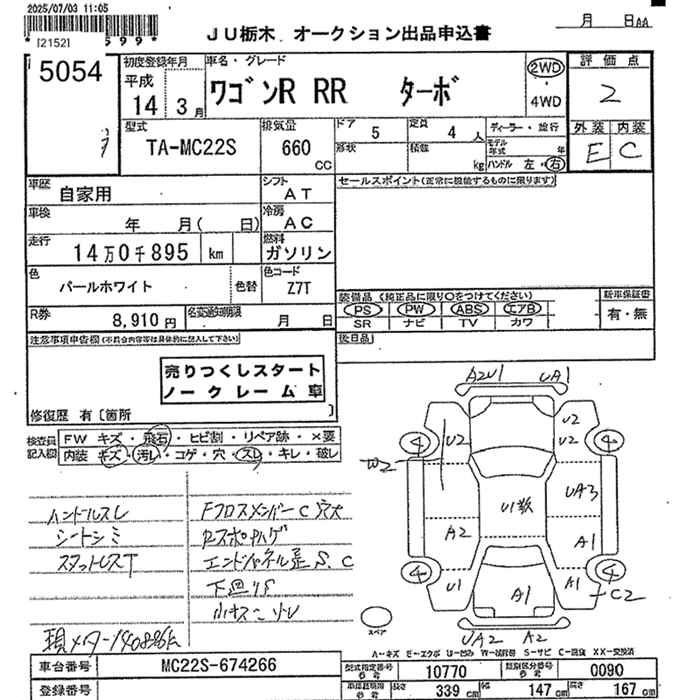 2025/07/03 11:05
月 日AA
[2152]
599*
JU栃木 オークション出品申込書
5054
初度登録年月
平成
14 3月
車名・グレード
ワゴンR RR ターボ
2WD
4WD
評価点
2
外装 内装
E C
型式
TA-MC22S
排気量
660 CC
ドア 5
定員 4人
形状
積載 kg
ディーラー・並行
モデル年式 年
ハンドル 左・右
車歴
自家用
シフト
AT
セールスポイント(正常に機能するものに限ります)
車検
年 月( 日)
冷房
AC
走行
14万0千895 km
燃料
ガソリン
色
パールホワイト
色替
色コード
Z7T
装備品 (純正品に限り○をつけてください)
PS PW ABS エアB
SR ナビ TV カワ
新車保証書
有・無
R券
8,910円
名変通知期限
月 日
後日品
注意事項申告欄(不具合内容等は具体的に記入して下さい)
売りつくしスタート
ノークレーム車
修復歴 有〔箇所 〕
検査員記入欄
FW キズ・飛石・ヒビ割・リペア跡・×要
内装 キズ・汚レ・コゲ・穴・スレ・キレ・破レ
ハンドルスレ
シートシミ
スタットレスT
Fクロスメンバー C穴大
Rスポ ハゲ
エンドパネル S、C
下廻りS
現メーター140886k
A2U1 UA1
U2
U2
U2
W2
U1数
UA3
A2
A1
U1
A1
A1
C2
UA2 A2
4
4
4
4
スペア
A-キズ E-エクボ U-凹み W-補修跡 S-サビ C-腐食 XX-交換済
車台番号
MC22S-674266
型式指定番号
10770
類別区分番号
0090
登録番号
長さ
339 cm
幅
147 cm
高さ
167 cm